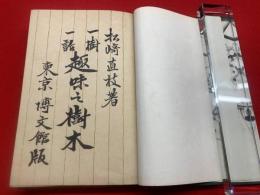 松崎直枝著
一樹
一話
趣味之樹木
東京 博文館版